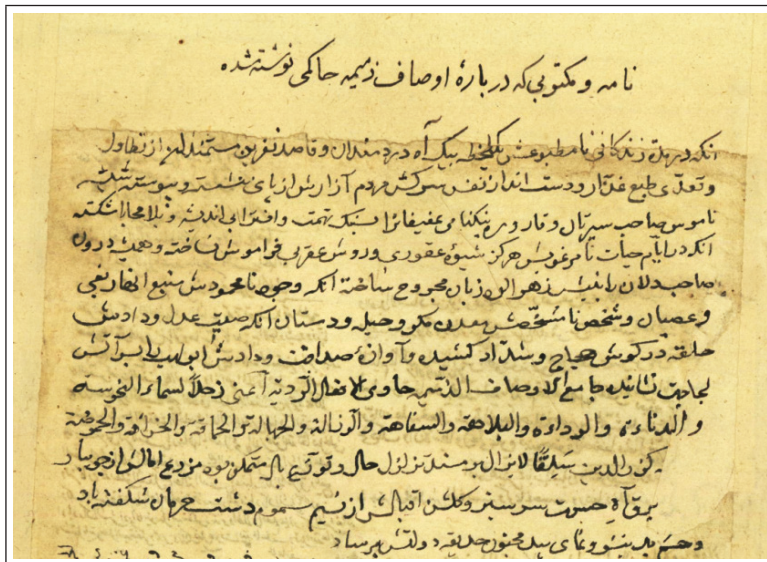 نامه و مکتوبی که دربارهٔ اوصاف ذمیمه حاکمی نوشته شده
انکه در مدّة زندکانی نامطبوعش یکلحظه پیک آه دردمندان و قاصد نفرین مستمندان از تطاول
و تعدّی طبع غدّار و دست انداز نفس سرکش مردم آزارش از پای ننشسته و پیوسته شیشه
ناموس صاحب سیرتان و قاروره نیکنامی عفیفانرا بسنک تهمت و افترا بی اندیشه و بلا محابا شکسته
انکه در ایّام حیات نامرغوبش هرکز شیوهٔ عقوری و روش عقربی فراموش نساخته و همیشه درون
صاحبدلان را بنیش زهرالود زبان مجروح ساخته انکه وجود نامحمودش منبع انهار بغی
و عصیان و شخص نامشخّصش معدن مکر و حیله و دستان انکه صیت عدل و دادش
حلقه در کوش حجاج و شدّاد کشیده و آوازهٔ صداقت و ودادش ابولهب را بر آتش
لجاجت نشانیده جامع الاوصاف الذمیمه حاوی الافعال الردیّه آعنی زحلاً لسماء النحوسة
و الدنائة و الرداءة و البلاهة و السفاهة و الرذالة و الجهالة و الحماقة و الخرافة و الحموضة
رکن الدین سَلیقًا لا یزال بر مسند تزلزل حال و توزّع بال متمکن بود مزرع امالش از جویبار
برق آه حسرت سرسبز و کلشن اقبالش از نسیم سموم دشت حرمان شکفته باد
و چشم بد بنشو و نمای بید مجنون حدیقه دولتش مرساد